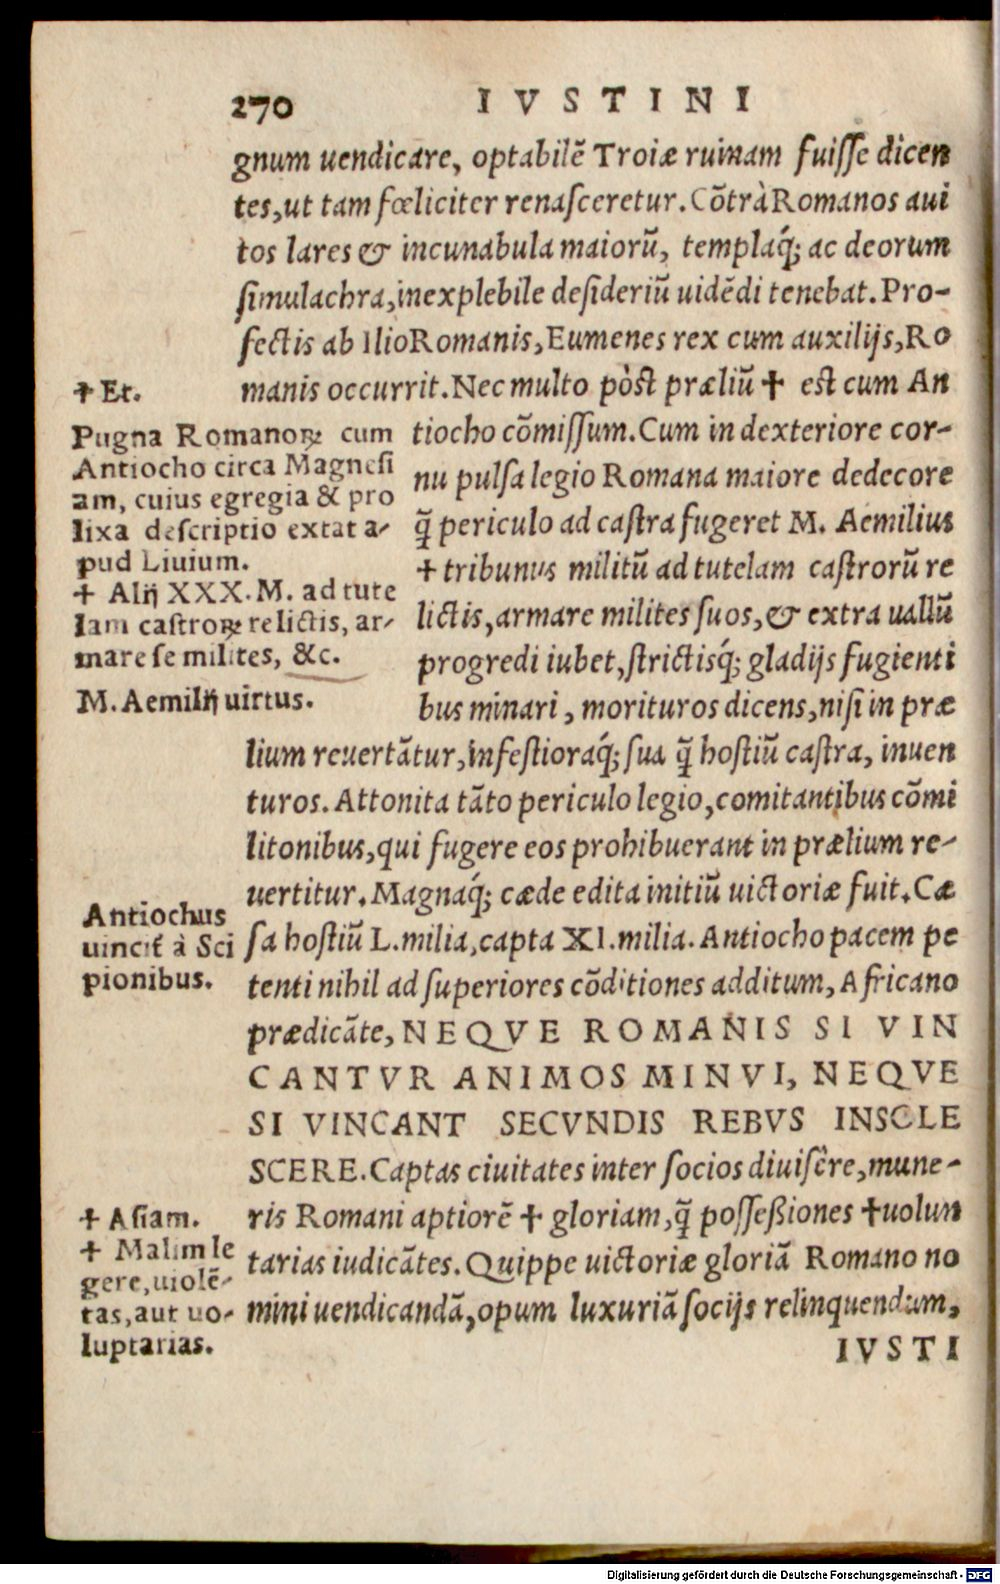 270 IVSTINI
gnum uendicare, optabilē Troiæ ruinam fuiſſe dicen
tes, ut tam fœliciter renaſceretur. Cōtrà Romanos aui
tos lares & incunabula maiorū, templaq́; ac deorum
ſimulachra, inexplebile deſideriū uidēdi tenebat. Pro-
fectis ab Ilio Romanis, Eumenes rex cum auxilijs, Ro
manis occurrit. Nec multo pòſt præliū † eſt cum An
tiocho cōmiſſum. Cum in dexteriore cor-
nu pulſa legio Romana maiore dedecore
q̃ periculo ad caſtra fugeret M. Aemilius
† tribunus militū ad tutelam caſtrorū re
lictis, armare milites ſuos, & extra uallū
progredi iubet, ſtrictisq́; gladijs fugienti
bus minari, morituros dicens, niſi in præ
lium reuertātur, infeſtioraq́; ſua q̃ hoſtiū caſtra, inuen
turos. Attonita tāto periculo legio, comitantibus cōmi
litonibus, qui fugere eos prohibuerant in prælium re-
uertitur. Magnaq́; cæde edita initiū uictoriæ fuit. Cæ
ſa hoſtiū L. milia, capta XI. milia. Antiocho pacem pe
tenti nihil ad ſuperiores cōditiones additum, Africano
prædicāte, NEQVE ROMANIS SI VIN
CANTVR ANIMOS MINVI, NEQVE
SI VINCANT SECVNDIS REBVS INSOLE
SCERE. Captas ciuitates inter ſocios diuiſêre, mune-
ris Romani aptiorē † gloriam, q̃ poſſeßiones † uolun
tarias iudicātes. Quippe uictoriæ gloriā Romano no
mini uendicandā, opum luxuriā ſocijs relinquendum,
IVSTI
† Et.
Pugna Romanoꝝ cum
Antiocho circa Magneſi
am, cuius egregia & pro
lixa deſcriptio extat a-
pud Liuium.
† Alij XXX. M. ad tute
lam caſtroꝝ relictis, ar-
mare ſe milites, &c.
M. Aemilij uirtus.
Antiochus
uincit̃ à Sci
pionibus.
† Aſiam.
† Malim le
gere, uiolē-
tas, aut uo-
luptarias.
Digitalisierung gefördert durch die Deutsche Forschungsgemeinschaft - DFG